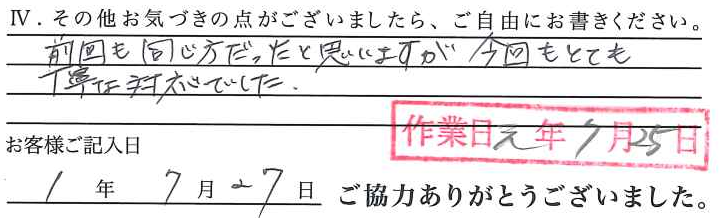 Ⅳ．その他お気づきの点がございましたら、ご自由にお書きください。
前回も同じ方だったと思いますが 今回もとても
丁寧な対応でした．
作業日元年7月25日
お客様ご記入日
1年7月27日 ご協力ありがとうございました。